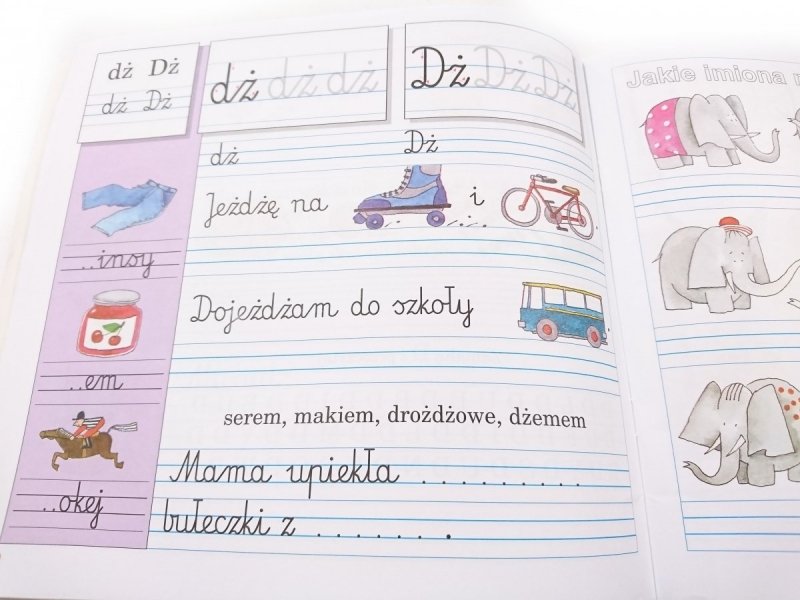 dż Dż
dż Dż
dż dż dż
Dż Dż Dż
dż Dż
Jeżdżę na i
..insy
Dojeżdżam do szkoły
..em
serem, makiem, drożdżowe, dżemem
Mama upiekła . . . . . . . . .
..okej
bułeczki z . . . . . . .
Jakie imiona